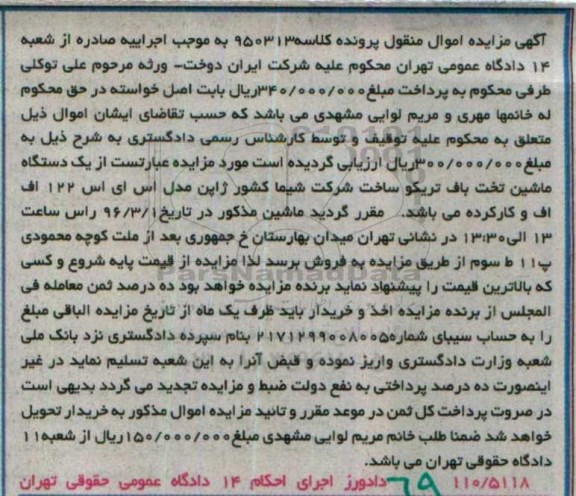 آگهی مزایده اموال منقول پرونده کلاسه ۹۵۰۳۱۳ به موجب اجراییه صادره از شعبه
۱۴ دادگاه عمومی تهران محکوم علیه شرکت ایران دوخت- ورثه مرحوم علی توکلی
طرفی محکوم به پرداخت مبلغ ۳۴۰/۰۰۰/۰۰۰ریال بابت اصل خواسته در حق محکوم
له خانمها مهری و مریم لوایی مشهدی می باشد که حسب تقاضای ایشان اموال ذیل
متعلق به محکوم علیه توقیف و توسط کارشناس رسمی دادگستری به شرح ذیل به
مبلغ ۳۰۰/۰۰۰/۰۰۰ریال ارزیابی گردیده است مورد مزایده عبارتست از یک دستگاه
ماشین تخت باف تریکو ساخت شرکت شیما کشور ژاپن مدل اس ای اس ۱۲۲ اف
اف و کارکرده می باشد. مقرر گردید ماشین مذکور در تاریخ ۹۶/۳/۱ راس ساعت
۱۳ الی۱۳:۳۰ در نشانی تهران میدان بهارستان خ جمهوری بعد از ملت کوچه محمودی
پ۱۱ ط سوم از طریق مزایده به فروش برسد لذا مزایده از قیمت پایه شروع و کسی
که بالاترین قیمت را پیشنهاد نماید برنده مزایده خواهد بود ده درصد ثمن معامله فی
المجلس از برنده مزایده اخذ و خریدار باید ظرف یک ماه از تاریخ مزایده الباقی مبلغ
را به حساب سیبای شماره۲۱۷۱۲۹۹۰۰۸۰۰۵ بنام سپرده دادگستری نزد بانک ملی
شعبه وزارت دادگستری واریز نموده و قبض آنرا به این شعبه تسلیم نماید در غیر
اینصورت ده درصد پرداختی به نفع دولت ضبط و مزایده تجدید می گردد بدیهی است
در صروت پرداخت کل ثمن در موعد مقرر و تائید مزایده اموال مذکور به خریدار تحویل
خواهد شد ضمنا طلب خانم مریم لوایی مشهدی مبلغ۱۵۰/۰۰۰/۰۰۰ریال از شعبه۱۱
دادگاه حقوقی تهران می باشد.
۱۱۰/۵۱۱۸ ۶۹ دادورز اجرای احکام ۱۴ دادگاه عمومی حقوقی تهران
ParsNamadData